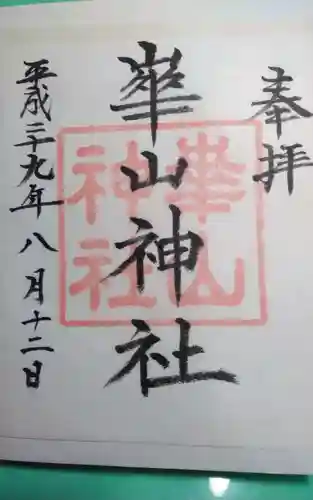 奉拝
崋山神社
平成二十九年八月十二日
崋山
神社